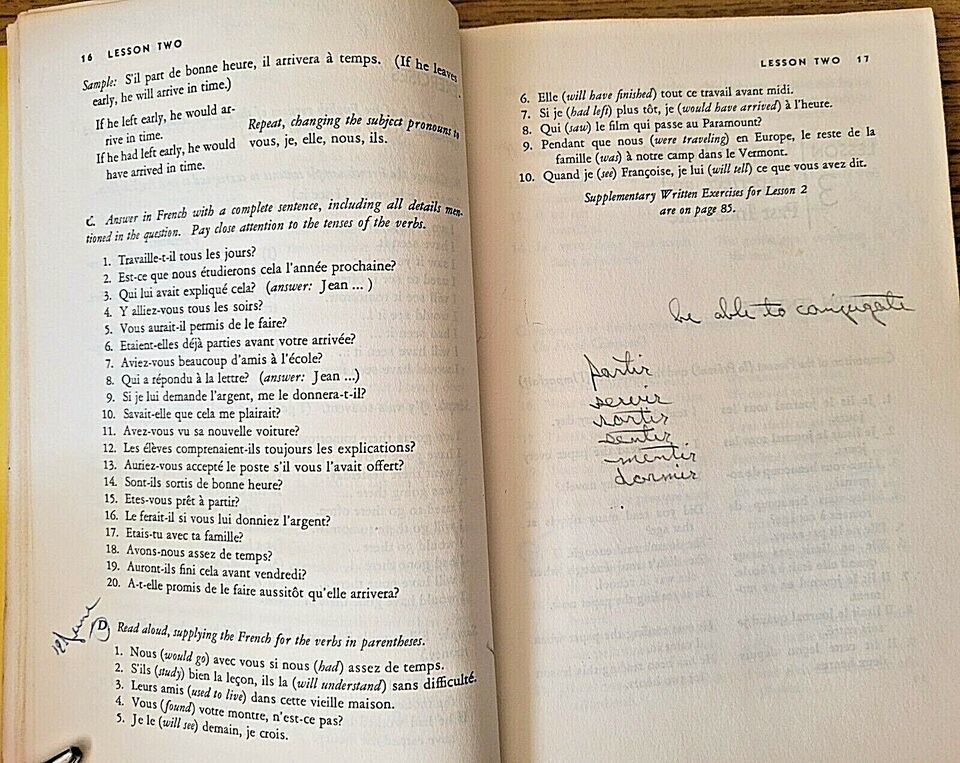 16 LESSON TWO
Sample: S'il part de bonne heure, il arrivera à temps. (If he leaves
early, he will arrive in time.)
If he left early, he would ar-
rive in time.
If he had left early, he would
have arrived in time.
Repeat, changing the subject pronouns to
vous, je, elle, nous, ils.
C. Answer in French with a complete sentence, including all details men-
tioned in the question. Pay close attention to the tenses of the verbs.
1. Travaille-t-il tous les jours?
2. Est-ce que nous étudierons cela l'année prochaine?
3. Qui lui avait expliqué cela? (answer: Jean ... )
4. Y alliez-vous tous les soirs?
5. Vous aurait-il permis de le faire?
6. Etaient-elles déjà parties avant votre arrivée?
7. Aviez-vous beaucoup d'amis à l'école?
8. Qui a répondu à la lettre? (answer: Jean ...)
9. Si je lui demande l'argent, me le donnera-t-il?
10. Savait-elle que cela me plairait?
11. Avez-vous vu sa nouvelle voiture?
12. Les élèves comprenaient-ils toujours les explications?
13. Auriez-vous accepté le poste s'il vous l'avait offert?
14. Sont-ils sortis de bonne heure?
15. Etes-vous prêt à partir?
16. Le ferait-il si vous lui donniez l'argent?
17. Etais-tu avec ta famille?
18. Avons-nous assez de temps?
19. Auront-ils fini cela avant vendredi?
20. A-t-elle promis de le faire aussitôt qu'elle arrivera?
D. Read aloud, supplying the French for the verbs in parentheses.
1. Nous (would go) avec vous si nous (had) assez de temps.
2. S'ils (study) bien la leçon, ils la (will understand) sans difficulté.
3. Leurs amis (used to live) dans cette vieille maison.
4. Vous (found) votre montre, n'est-ce pas?
5. Je le (will see) demain, je crois.
LESSON TWO 17
6. Elle (will have finished) tout ce travail avant midi.
7. Si je (had left) plus tôt, je (would have arrived) à l'heure.
8. Qui (saw) le film qui passe au Paramount?
9. Pendant que nous (were traveling) en Europe, le reste de la
famille (was) à notre camp dans le Vermont.
10. Quand je (see) Françoise, je lui (will tell) ce que vous avez dit.
Supplementary Written Exercises for Lesson 2
are on page 85.
be able to conjugate
partir
servir
sortir
sentir
mentir
dormir